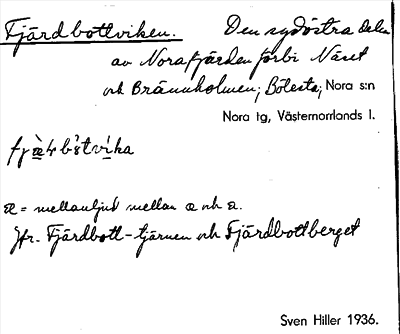 Fjärdbottviken. Den sydöstra delen
av Norafjärden förbi Näset
och Brännholmen; Bölesta; Nora s:n
Nora tg, Västernorrlands l.
æ = mellanljud mellan a och ä.
Jfr. Fjärdbott-tjärnen och Fjärdbottberget
Sven Hiller 1936.